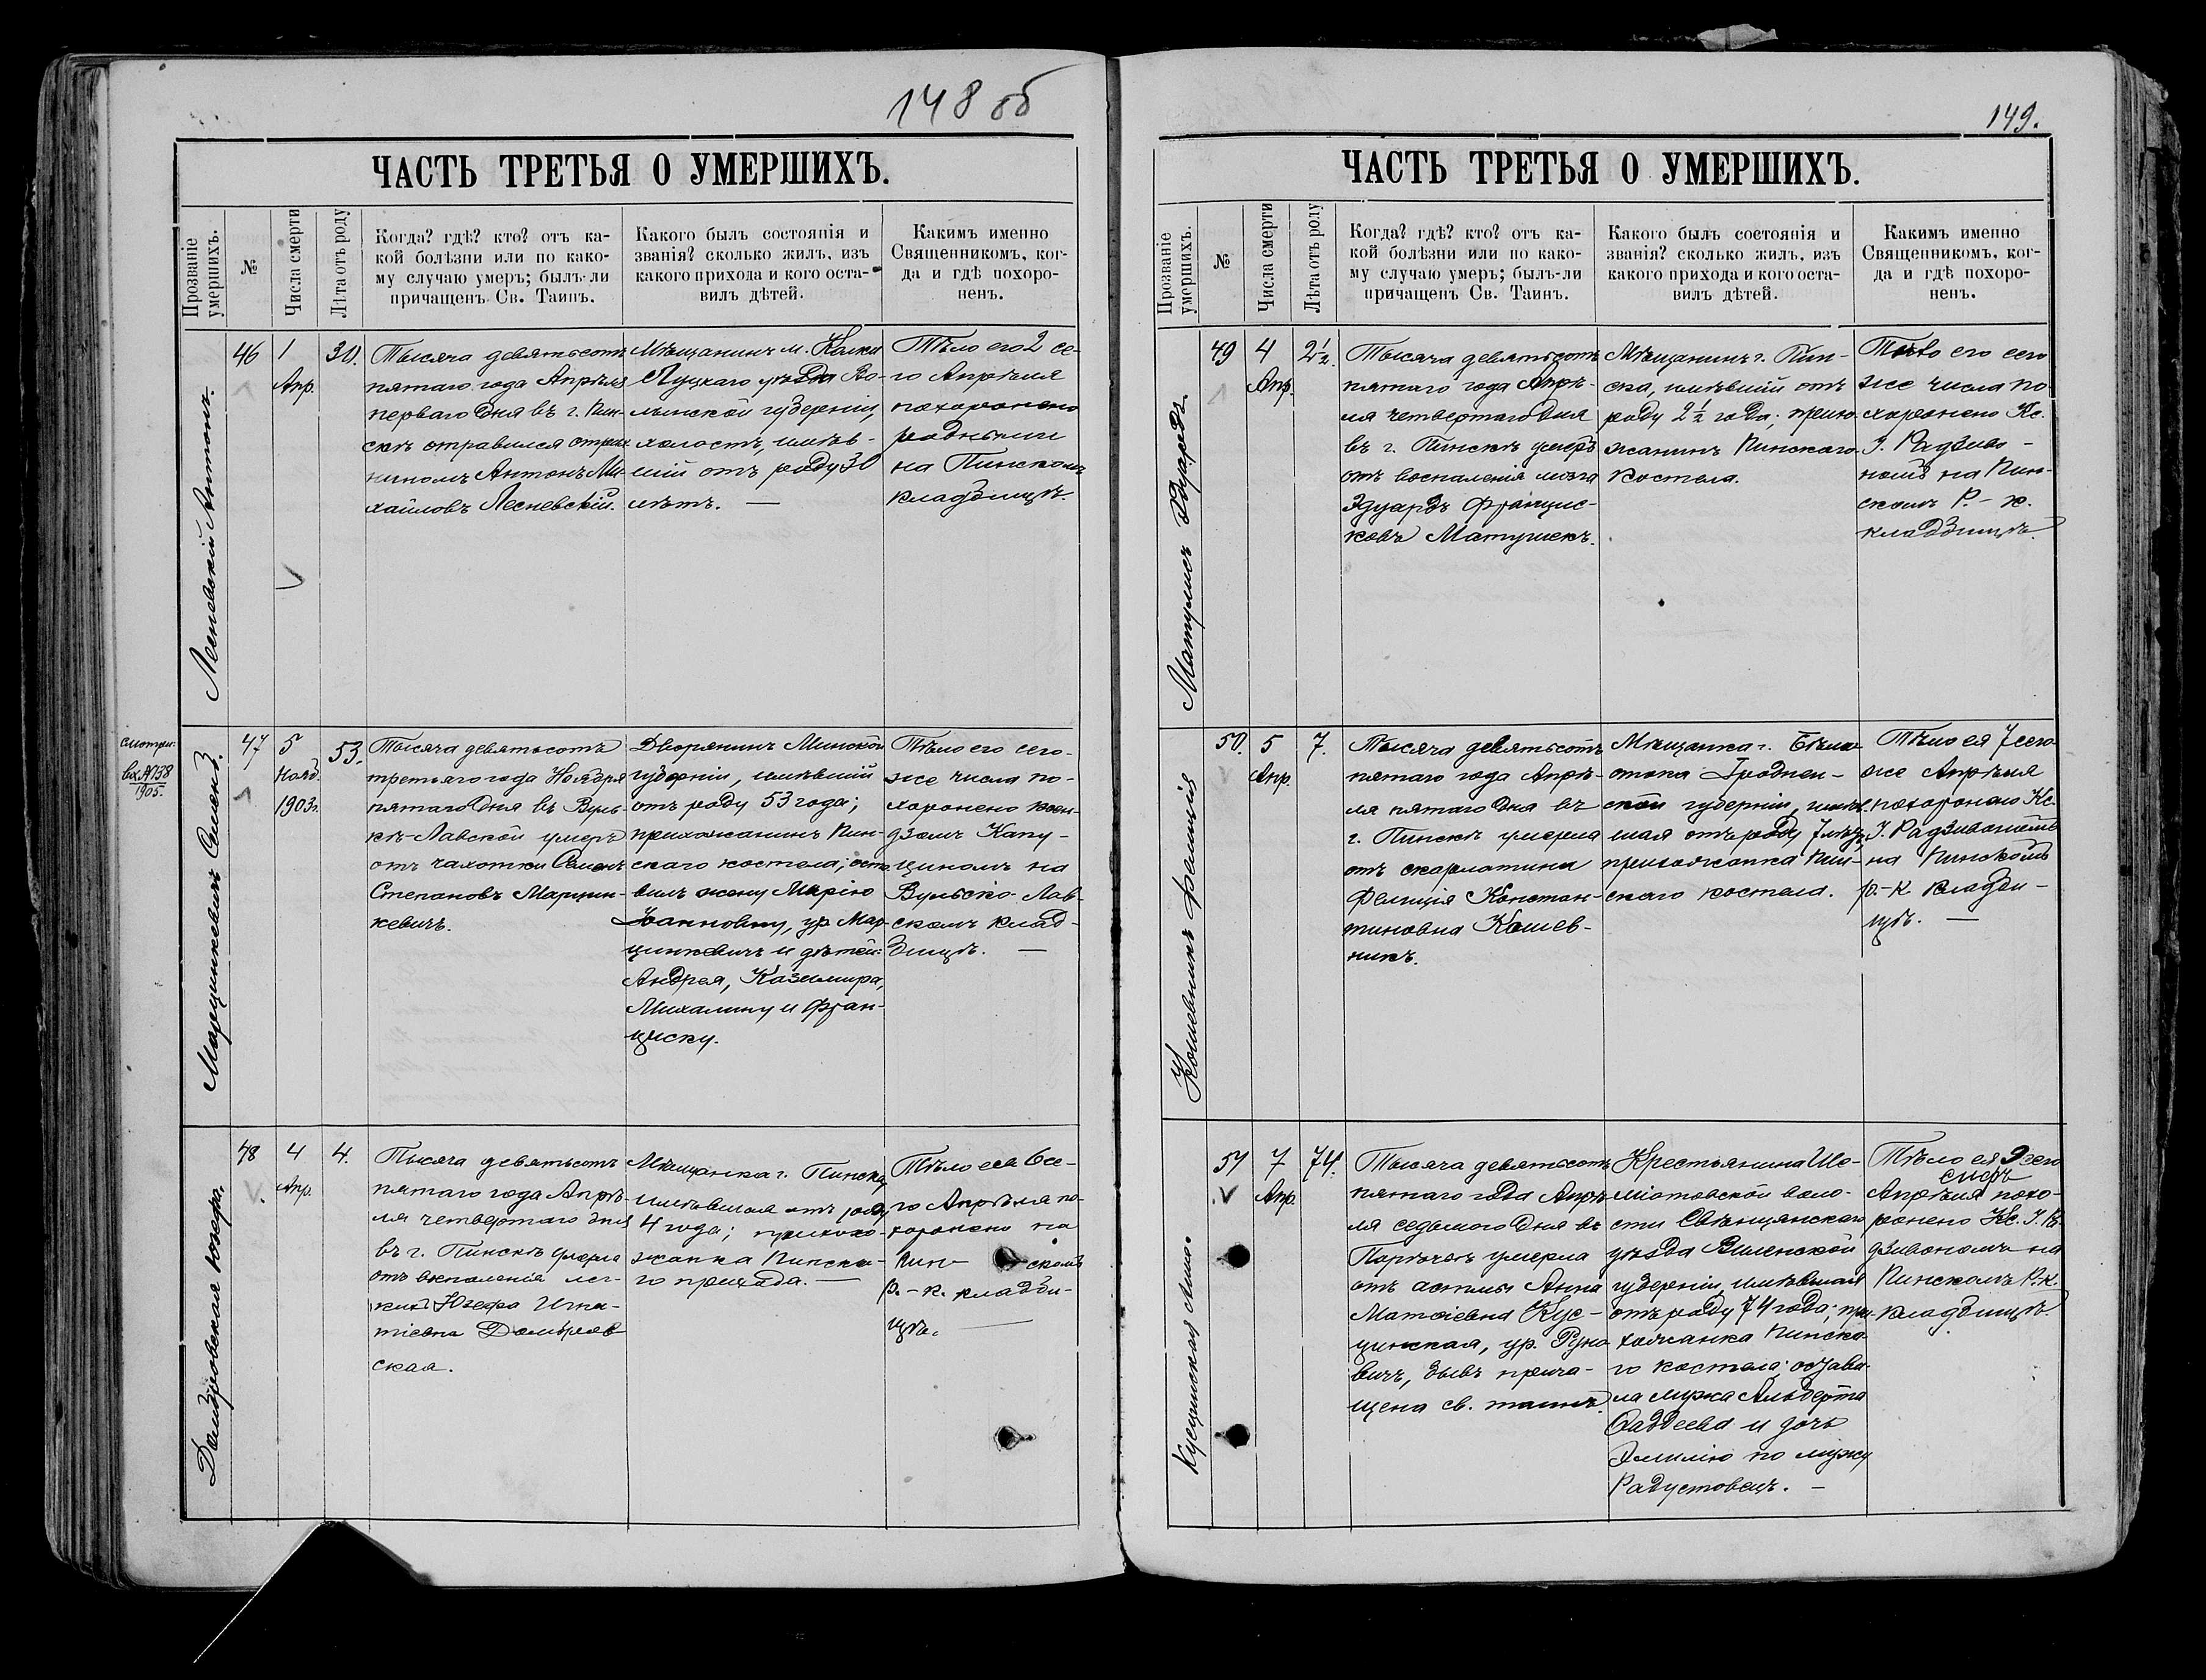 148 об
ЧАСТЬ ТРЕТЬЯ О УМЕРШИХЪ.
Прозваніе умершихъ.
№
Числа смерти
Лѣта отъ роду
Когда? гдѣ? кто? отъ ка-
кой болѣзни или по како-
му случаю умеръ; былъ-ли
причащенъ Св. Таинъ.
Какого былъ состоянія и
званія? сколько жилъ, изъ
какого прихода и кого оста-
вилъ дѣтей.
Какимъ именно
Священникомъ, ког-
да и гдѣ похоро-
ненъ.
Лесневскій Антонъ.
46
1
Апр.
30.
Тысяча девятьсотъ
пятаго года Апрѣля
перваго дня въ г. Пин-
скѣ отравился стрих-
ниномъ Антонъ Ми-
хайловъ Лесневскій.
Мѣщанинъ м. Колки
Луцкаго уѣзда Во-
лынской губерніи,
холостъ, имѣв-
шій отъ роду 30
лѣтъ. —
Тѣло его 2 се-
го Апрѣля
похоронено
родными
на Пинскомъ
кладбищѣ.
смотри:
вх. №138
1905.
Марцинкевичъ Семенъ.
47
5
Нояб.
1903 г.
53.
Тысяча девятьсотъ
третьяго года Ноября
пятаго дня въ Вуль-
кѣ-Лавской умеръ
отъ чахотки Семенъ
Степановъ Марцин-
кевичъ.
Дворянинъ Минской
губерніи, имѣвшій
отъ роду 53 года;
прихожанинъ Пин-
скаго костела; оста-
вилъ жену Марію
Іоанновну, ур. Мар-
цинкевичъ и дѣтей:
Андрея, Казимира,
Михалину и Фран-
циску.
Тѣло его сего-
же числа по-
хоронено ксен-
дзомъ Капу-
циномъ на
Вульско-Лав-
скомъ клад-
бищѣ. —
Домбровская Юзефа.
48
4
Апр.
4.
Тысяча девятьсотъ
пятаго года Апрѣ-
ля четвертаго дня
въ г. Пинскѣ умерла
отъ воспаленія лег-
кихъ Юзефа Игна-
тіевна Домбров-
ская.
Мѣщанка г. Пинска,
имѣвшая отъ роду
4 года; прихо-
жанка Пинска-
го прихода. —
Тѣло ея 6 се-
го Апрѣля по-
хоронено на
Пин- скомъ
р.-к. кладби-
щѣ. —
149.
ЧАСТЬ ТРЕТЬЯ О УМЕРШИХЪ.
Прозваніе умершихъ.
№
Числа смерти
Лѣта отъ роду
Когда? гдѣ? кто? отъ ка-
кой болѣзни или по како-
му случаю умеръ; былъ-ли
причащенъ Св. Таинъ.
Какого былъ состоянія и
званія? сколько жилъ, изъ
какого прихода и кого оста-
вилъ дѣтей.
Какимъ именно
Священникомъ, ког-
да и гдѣ похоро-
ненъ.
Эдуардъ.
49
4
Апр.
2½.
Тысяча девятьсотъ
пятаго года Апрѣ-
ля четвертаго дня
въ г. Пинскѣ умеръ
отъ воспаленія мозга
Эдуардъ Францис-
ковъ Матушекъ.
Мѣщанинъ г. Пин-
ска, имѣвшій отъ
роду 2½ года; прихо-
жанинъ Пинскаго
костела.
Тѣло его сего
же числа по-
хоронено Кс.
І. Радзиво-
номъ на Пин-
скомъ Р.-к.
кладбищѣ.
Кошевникъ Фелиція
50.
5
Апр.
7.
Тысяча девятьсотъ
пятаго года Апрѣ-
ля пятаго дня въ
г. Пинскѣ умерла
отъ скарлатины
Фелиція Констан-
тиновна Кошев-
никъ.
Мѣщанка г. Бѣло-
стока Гроднен-
ской губерніи, имѣв-
шая отъ роду 7 лѣтъ;
прихожанка Пин-
скаго костела.
Тѣло ея 7 сего
же Апрѣля
похоронено Кс.
І. Радзивономъ
на Пинскомъ
р.-к кладби-
щѣ. —
Кусцинская Анна.
51
7
Апр.
74.
Тысяча девятьсотъ
пятаго года Апрѣ-
ля седьмого дня въ
Порѣчьѣ умерла
отъ астмы Анна
Матвіевна Кус-
цинская, ур. Руно-
вичъ, бывъ прича-
щена св. таинъ.
Крестьянина
волости Свѣнцянскаго
уѣзда Виленской
губерніи, имѣвшая
отъ роду 74 года; при-
хожанка Пинска-
го костела; остави-
ла мужа Альберта
Фаддеева и дочь
Эмилію по мужу
Радустовецъ. —
Тѣло ея 9 сего
Апрѣля похо-
ронено Кс. І. Ра-
дзивономъ на
Пинскомъ Р.-к.
кладбищѣ.